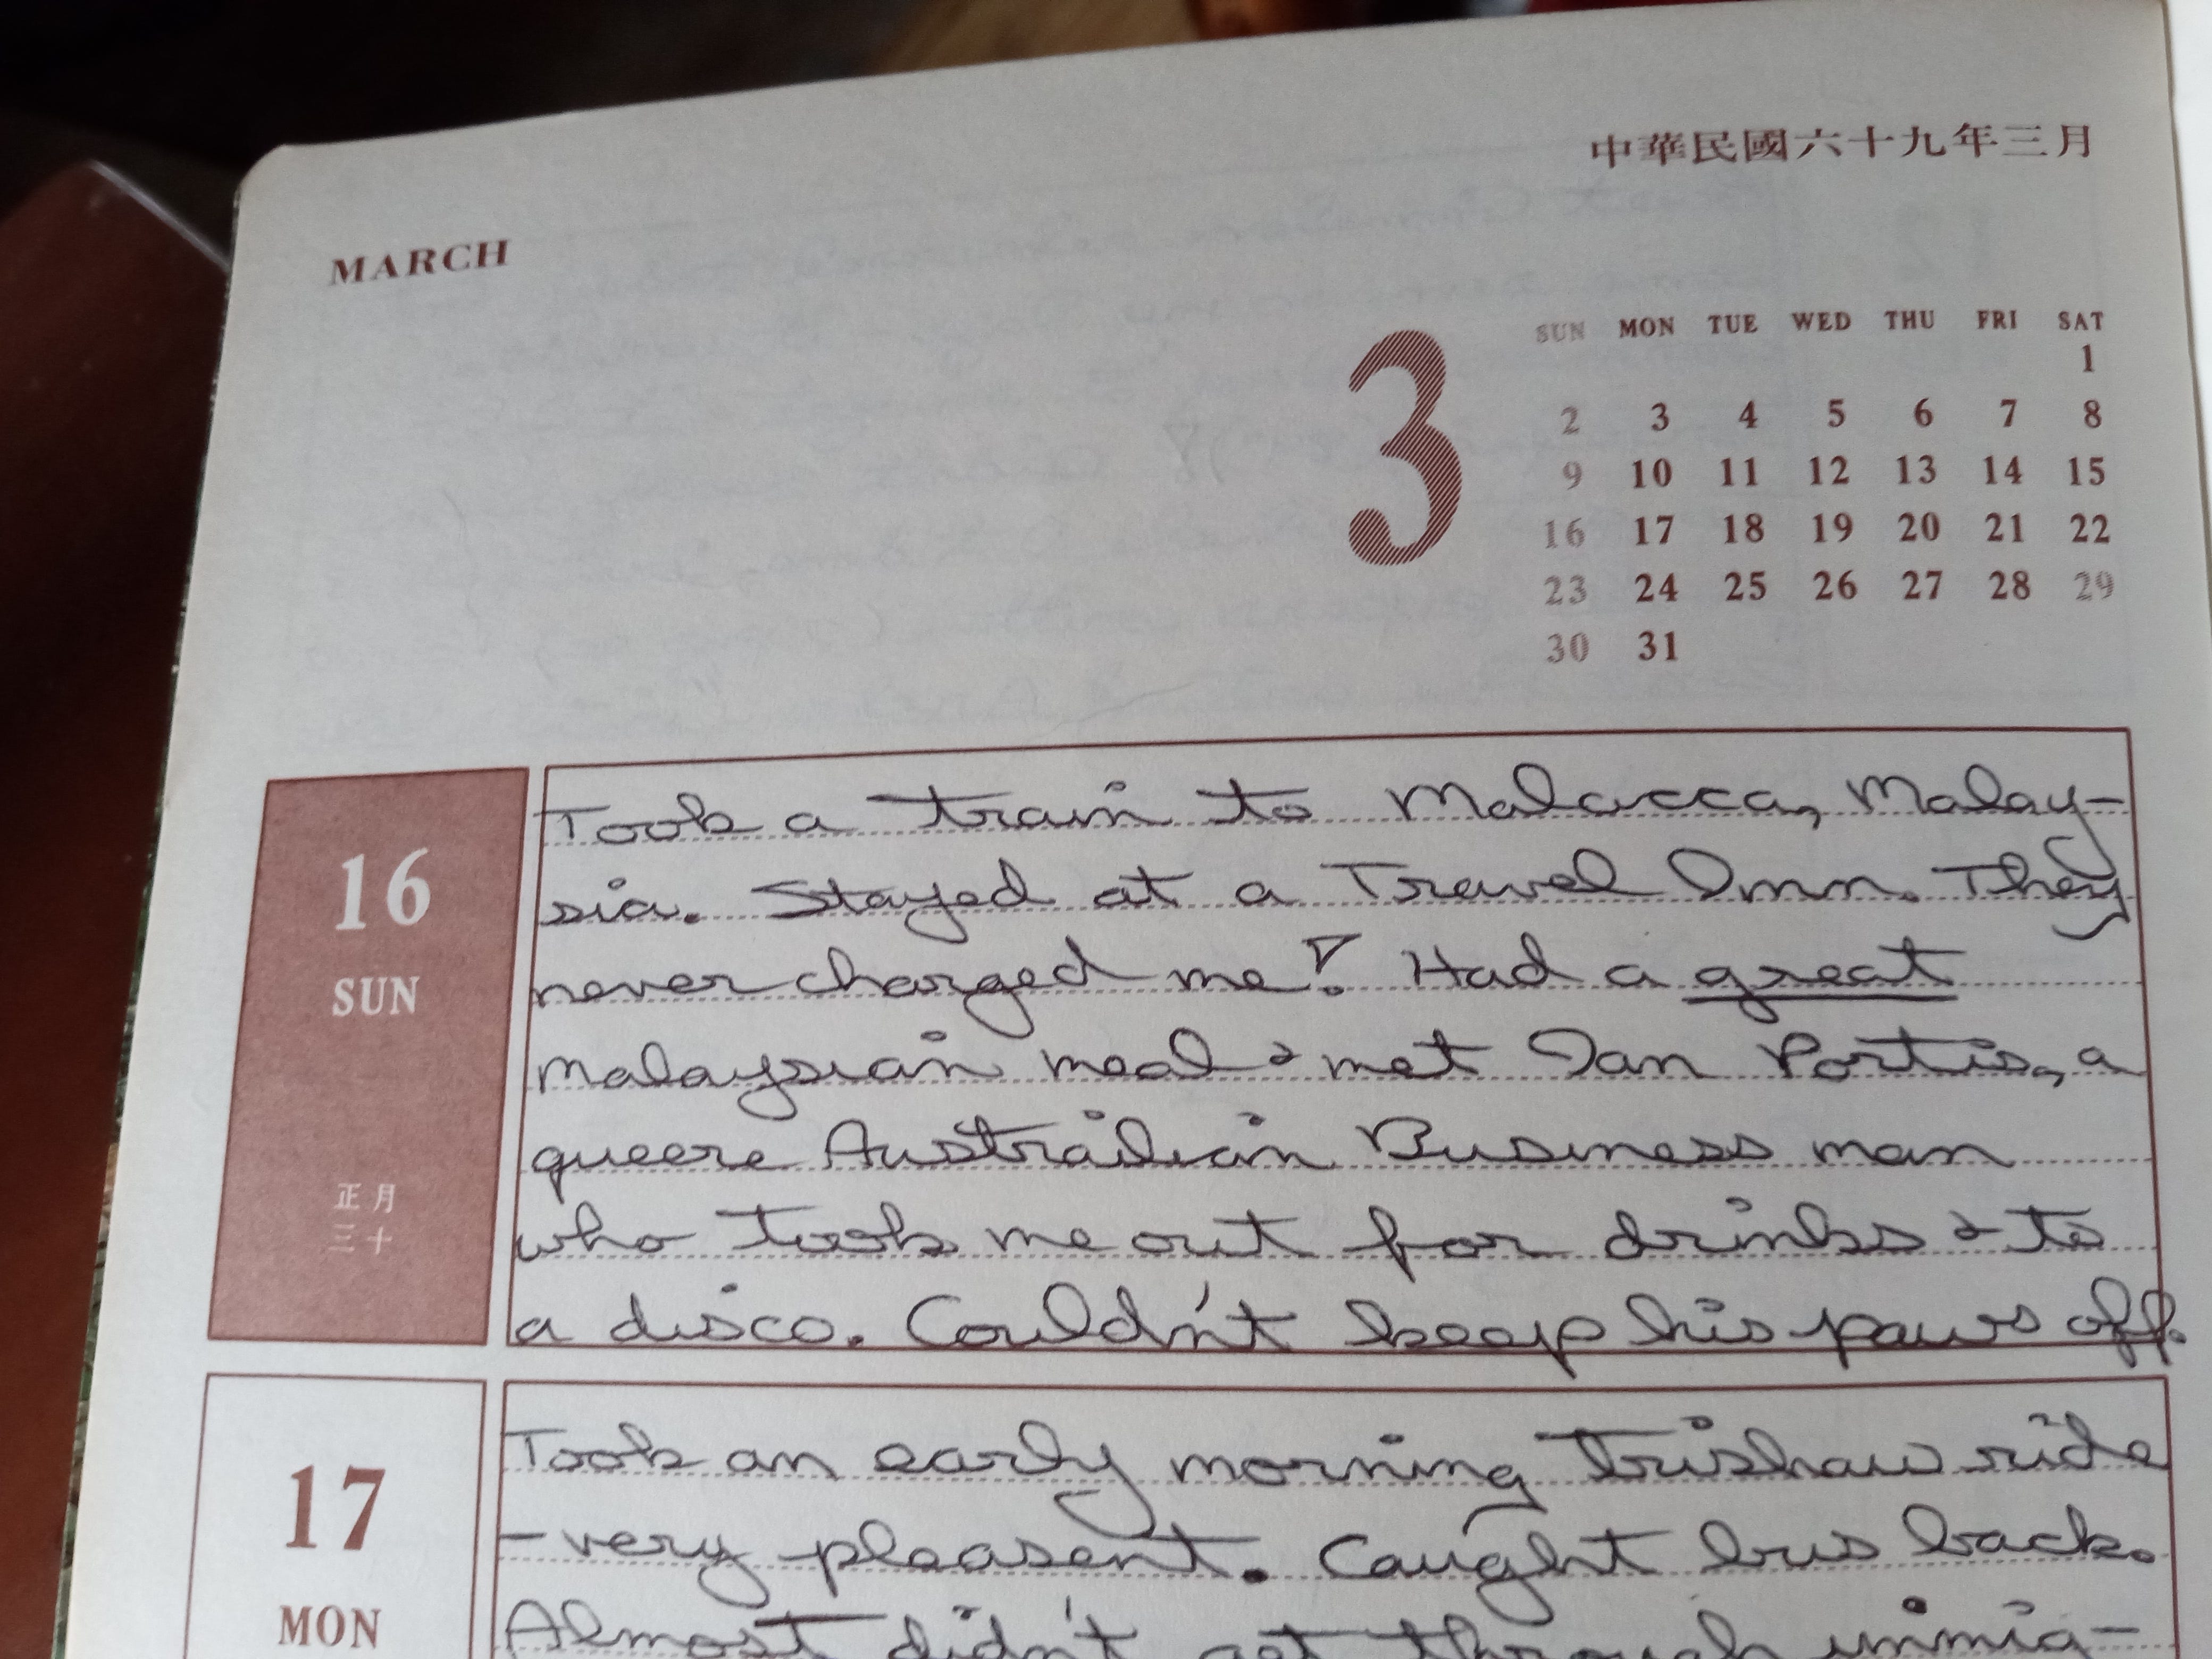 中華民國六十九年三月
MARCH
3
SUN MON TUE WED THU FRI SAT
1
2 3 4 5 6 7 8
9 10 11 12 13 14 15
16 17 18 19 20 21 22
23 24 25 26 27 28 29
30 31
16
SUN
正月
三十
Took a train to Malacca, Malay-
sia. Stayed at a Travel Inn. They
never charged me! Had a great
Malaysian meal & met Ian Portis, a
queere Austrailian Business man
who took me out for drinks & to
a disco. Couldn't keep his paws off.
17
MON
Took an early morning trishaw ride
- very pleasent. Caught bus back.
Almost didn't get through immig-